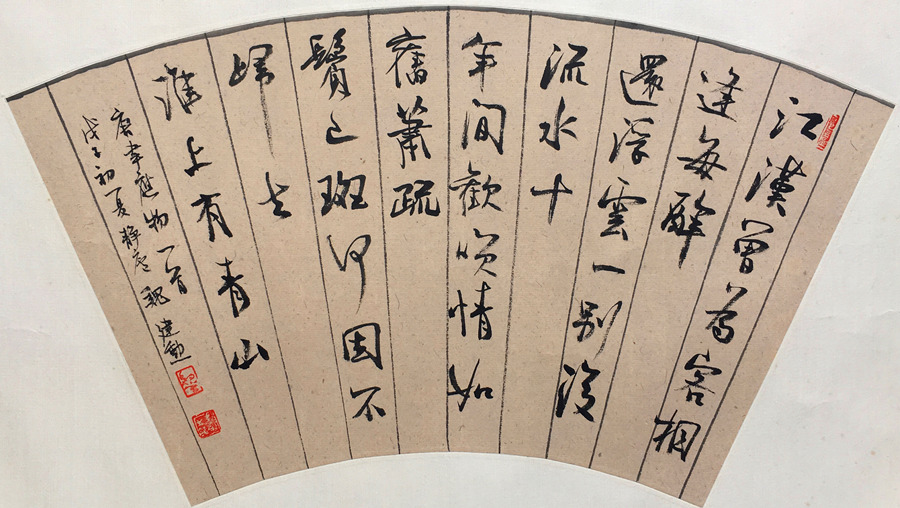 江漢曾為客相
逢每醉
還浮雲一別後
流水十
年間歡笑情如
舊蕭疏
鬢已斑何因不
歸去
淮上有青山
唐韋應物一首
戊子初夏靜庵魏建勳